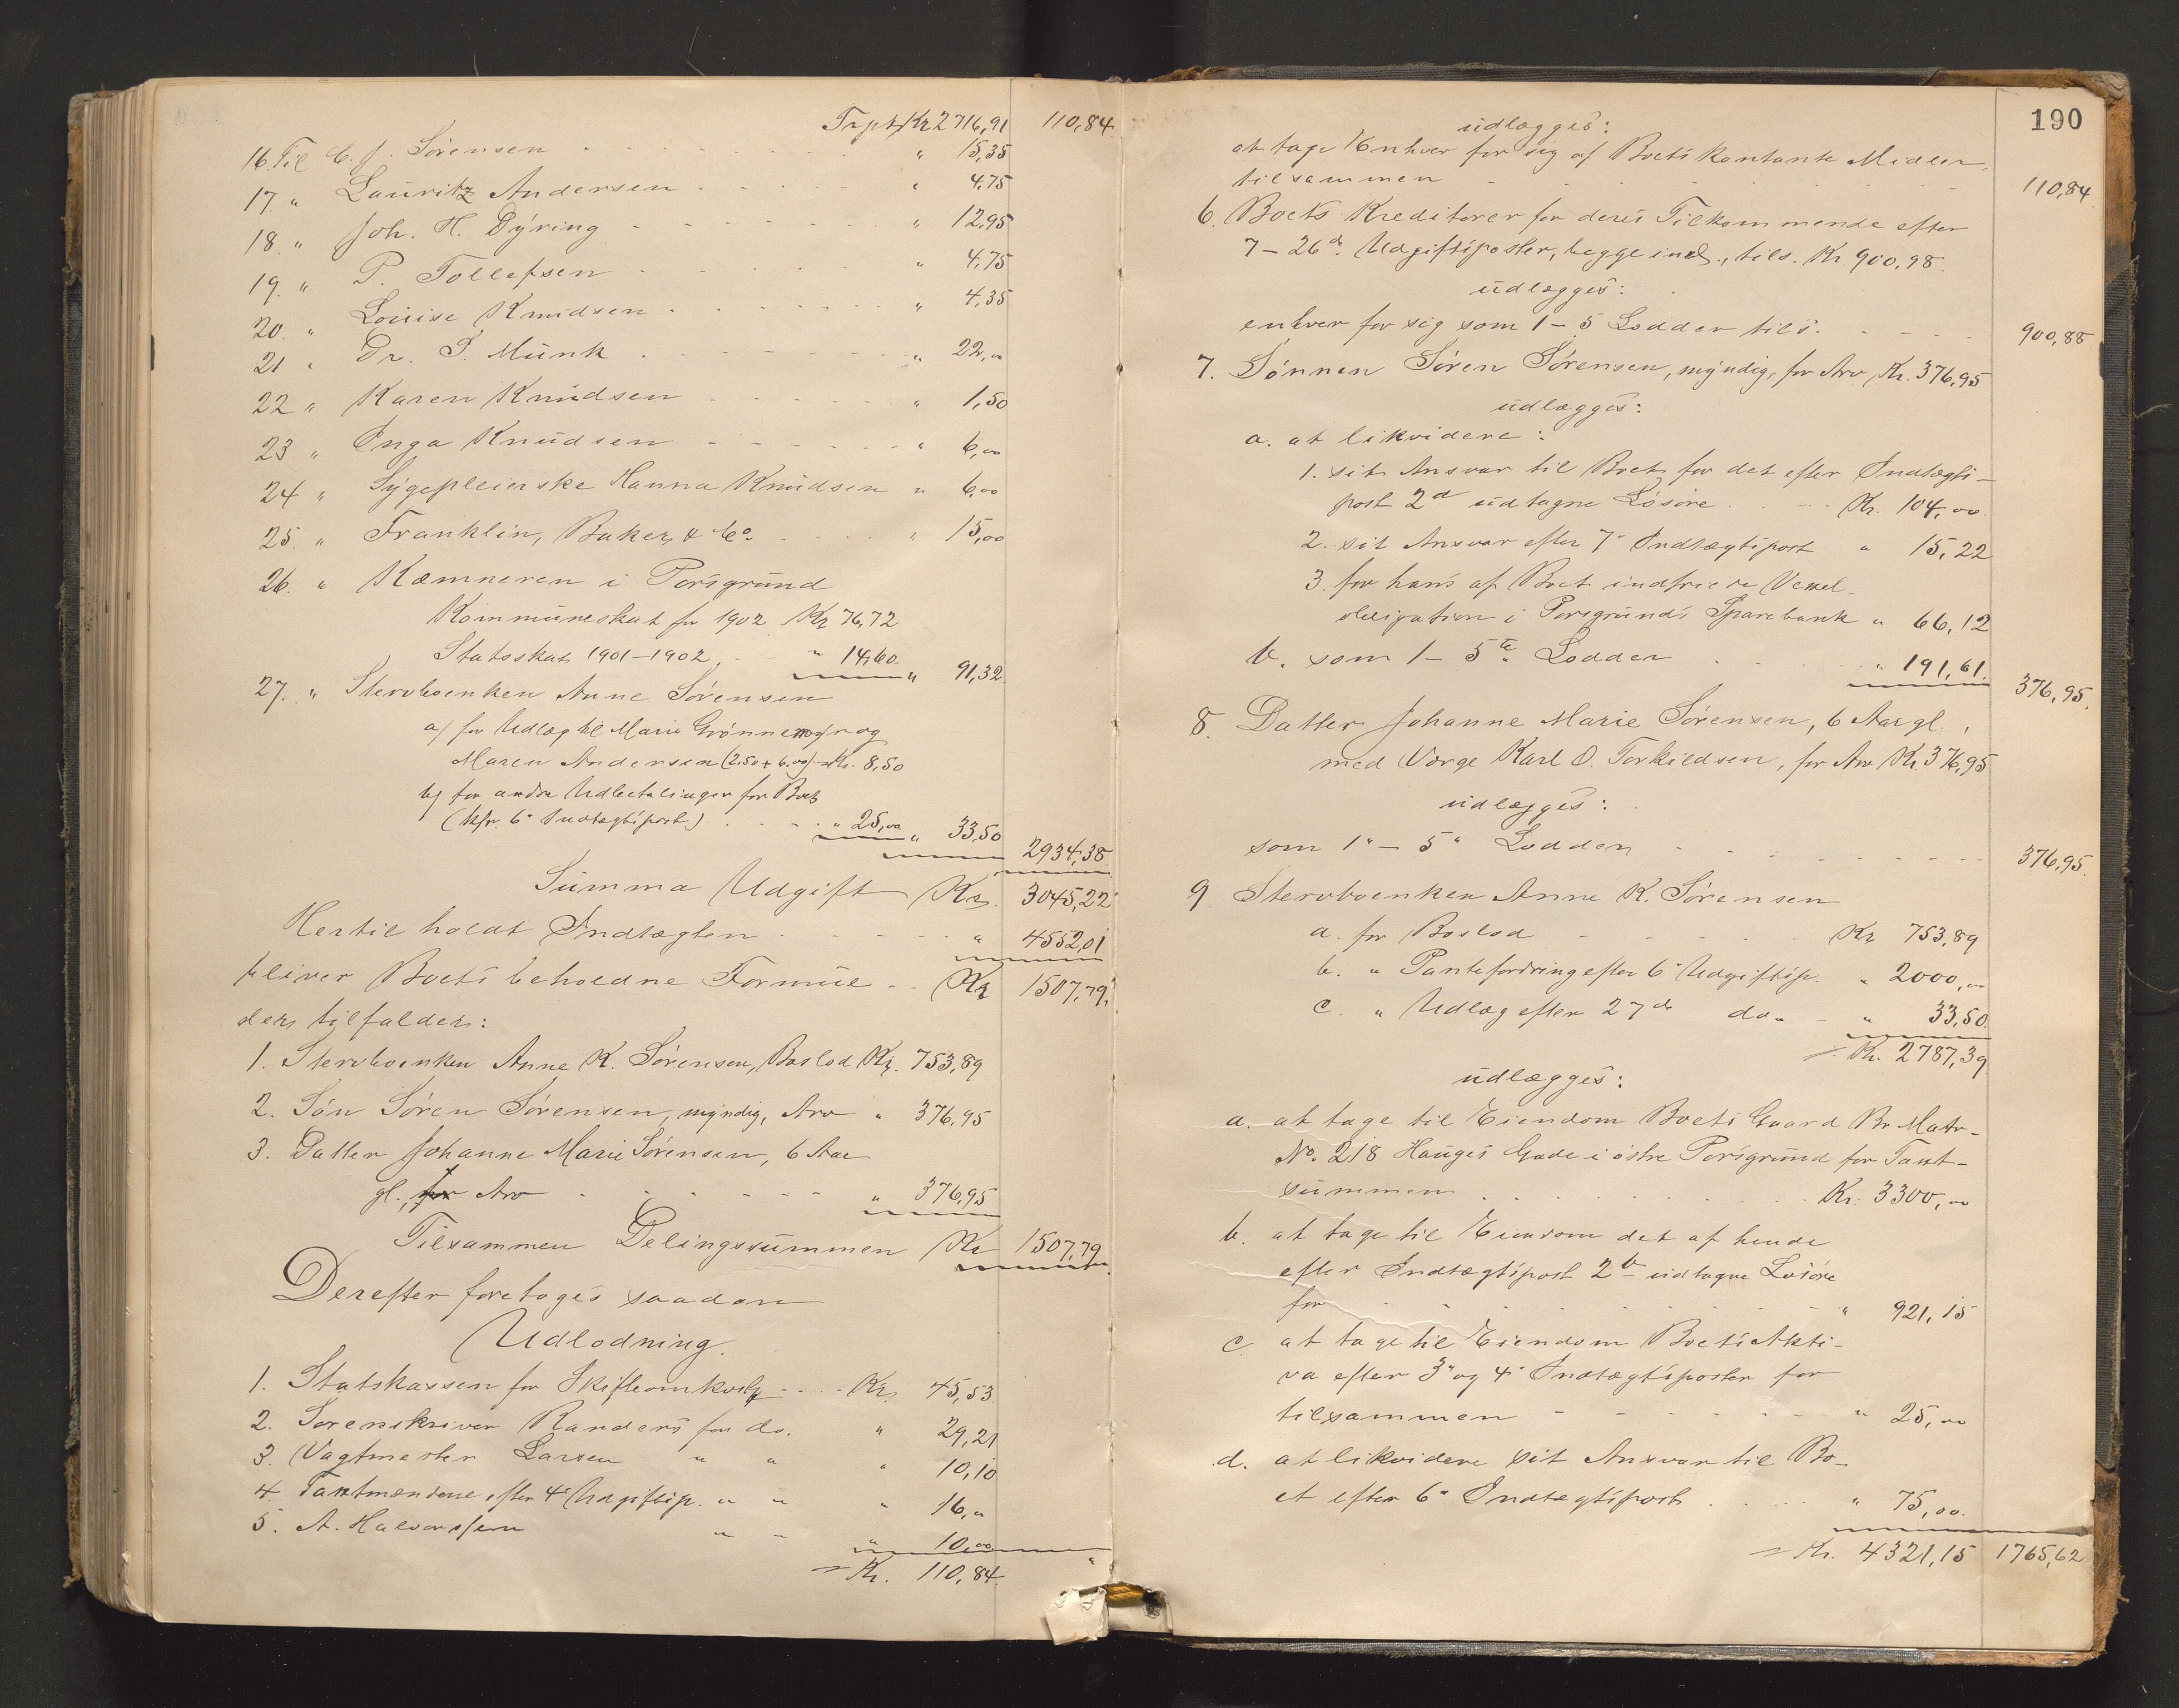 Trpt. Kr 2716,91 110,84
16. Til C. J. Sörensen " 15,35
17. " Lauritz Andersen " 4,75
18. " Joh. H. Dyring " 12,95
19. " P. Tollefsen " 4,75
20. " Louise Knudsen " 4,35
21 " Dr. S. Munk " 22,00
22 " Karen Knudsen " 1,50
23 " Inga Knudsen " 6,00
24 " Sygepleierske Hanna Knudsen " 6,00
25. " Franklin, Baker & Co. " 15,00
26. " Kæmneren i Porsgrund
Kommuneskat for 1902 Kr 76,72
Statsskat 1901-1902 " 14,60 " 91,32
27. " Stervboenken Anne Sörensen
a) for Udlæg til Marie Grönnemyr og
Maren Andersen (2.50 + 6,00) Kr. 8,50
b) for andre Udbetalinger for Boet
(kfr. 6" Indtægtspost) " 25,00 " 33,50
2934,38
Summa Udgift Kr. 3045,22
Hertil holdt Indtægten " 4552,01
bliver Boets beholdne Formue Kr 1507,79
der tilfalder:
1. Stervboenken Anne K. Sörensen, Boslod Kr. 753,89
2. Sön Sören Sörensen, myndig, Arv " 376,95
3. Datter Johanne Marie Sörensen, 6 Aar
gl., for Arv " 376,95
Tilsammen Delingssummen Kr 1507,79
Derefter foretoges saadan
Udlodning.
1. Statskassen for Skifteomkostg. Kr. 45,53
2. Sorenskriver Randers for do. " 29,21
3. Vagtmester Larsen " " " 10,10
4. Taxtmændene efter 4" Udgiftsp. " " " 16,"
5. A. Halvorsen " " " 10,00
= Kr. 110,84 "
190
udlægges:
at tage Enhver for sig af Boets kontante Midler,
tilsammen 110,84
6. Boets Kreditorer for deres Tilkommende efter
7-26de Udgiftsposter, begge incl., tils. Kr. 900,98
udlægges:
enhver for sig som 1-5 Lodder tils. 900,88
7. Sönnen Sören Sörensen, myndig, for Arv, Kr. 376,95
udlægges:
a. at likvidere:
1. sit Ansvar til Boet for det efter Indtægts-
post 2a udtagne Lösöre Kr. 104,00
2. sit Ansvar efter 7" Indtægtspost " 15,22
3. for hans af Boet indfriede Vexel-
obligation i Porsgrunds Sparebank " 66,12
b. som 1-5te Lodder " 191,61
376,95
8. Datter Johanne Marie Sörensen, 6 Aar gl.,
med Værge Karl O. Torkildsen, for Arv Kr. 376,95
udlægges:
som 1"-5" Lodder 376,95
9. Stervboenken Anne K. Sörensen
a. for Boslod Kr 753,89
b. " Pantefordring efter 6" Udgiftsp. " 2000,00
c. " Udlæg efter 27de do. " 33,50
= Kr. 2787,39
udlægges:
a. at tage til Eiendom Boets Gaard Br. Matr-
No. 218 Hauges Gade i östre Porsgrund for Taxt-
summen Kr. 3300,00
b. at tage til Eiendom det af hende
efter Indtægtspost 2b udtagne Lösöre
for " 921,15
c at tage til Eiendom Boets Akti-
va efter 3" og 4" Indtægtsposter for
tilsammen " 25,00
d. at likvidere sit Ansvar til Bo-
et efter 6" Indtægtspost " 75,00
= Kr. 4321,15 1765,62